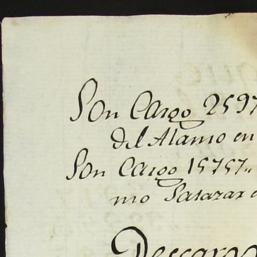 Son Cargo 2597
del Alamo en
Son Cargo 15757..
mo Salazar
Descargo